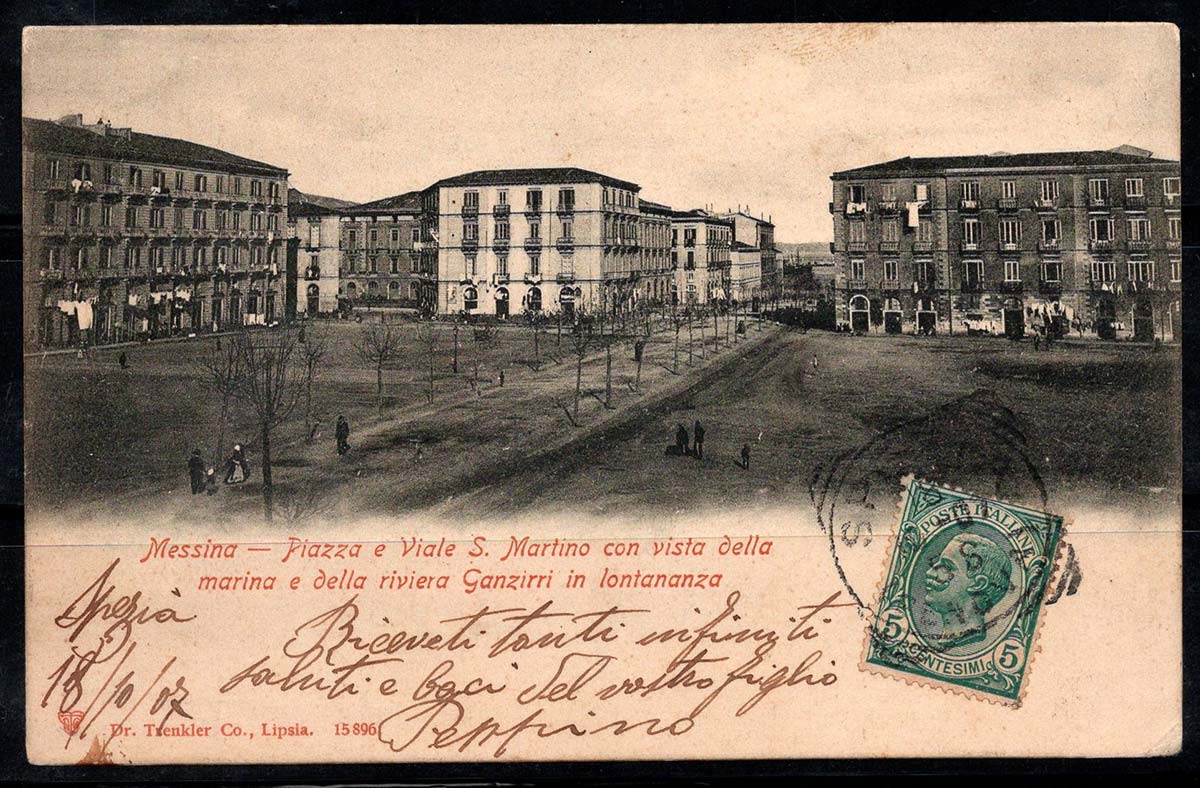 Messina — Piazza e Viale S. Martino con vista della
marina e della riviera Ganzirri in lontananza
Spezia
18/10/07
Riceveti tanti infiniti
saluti e baci del vostro figlio
Peppino
Dr. Trenkler Co., Lipsia. 15896
POSTE ITALIANE
5 CENTESIMI 5